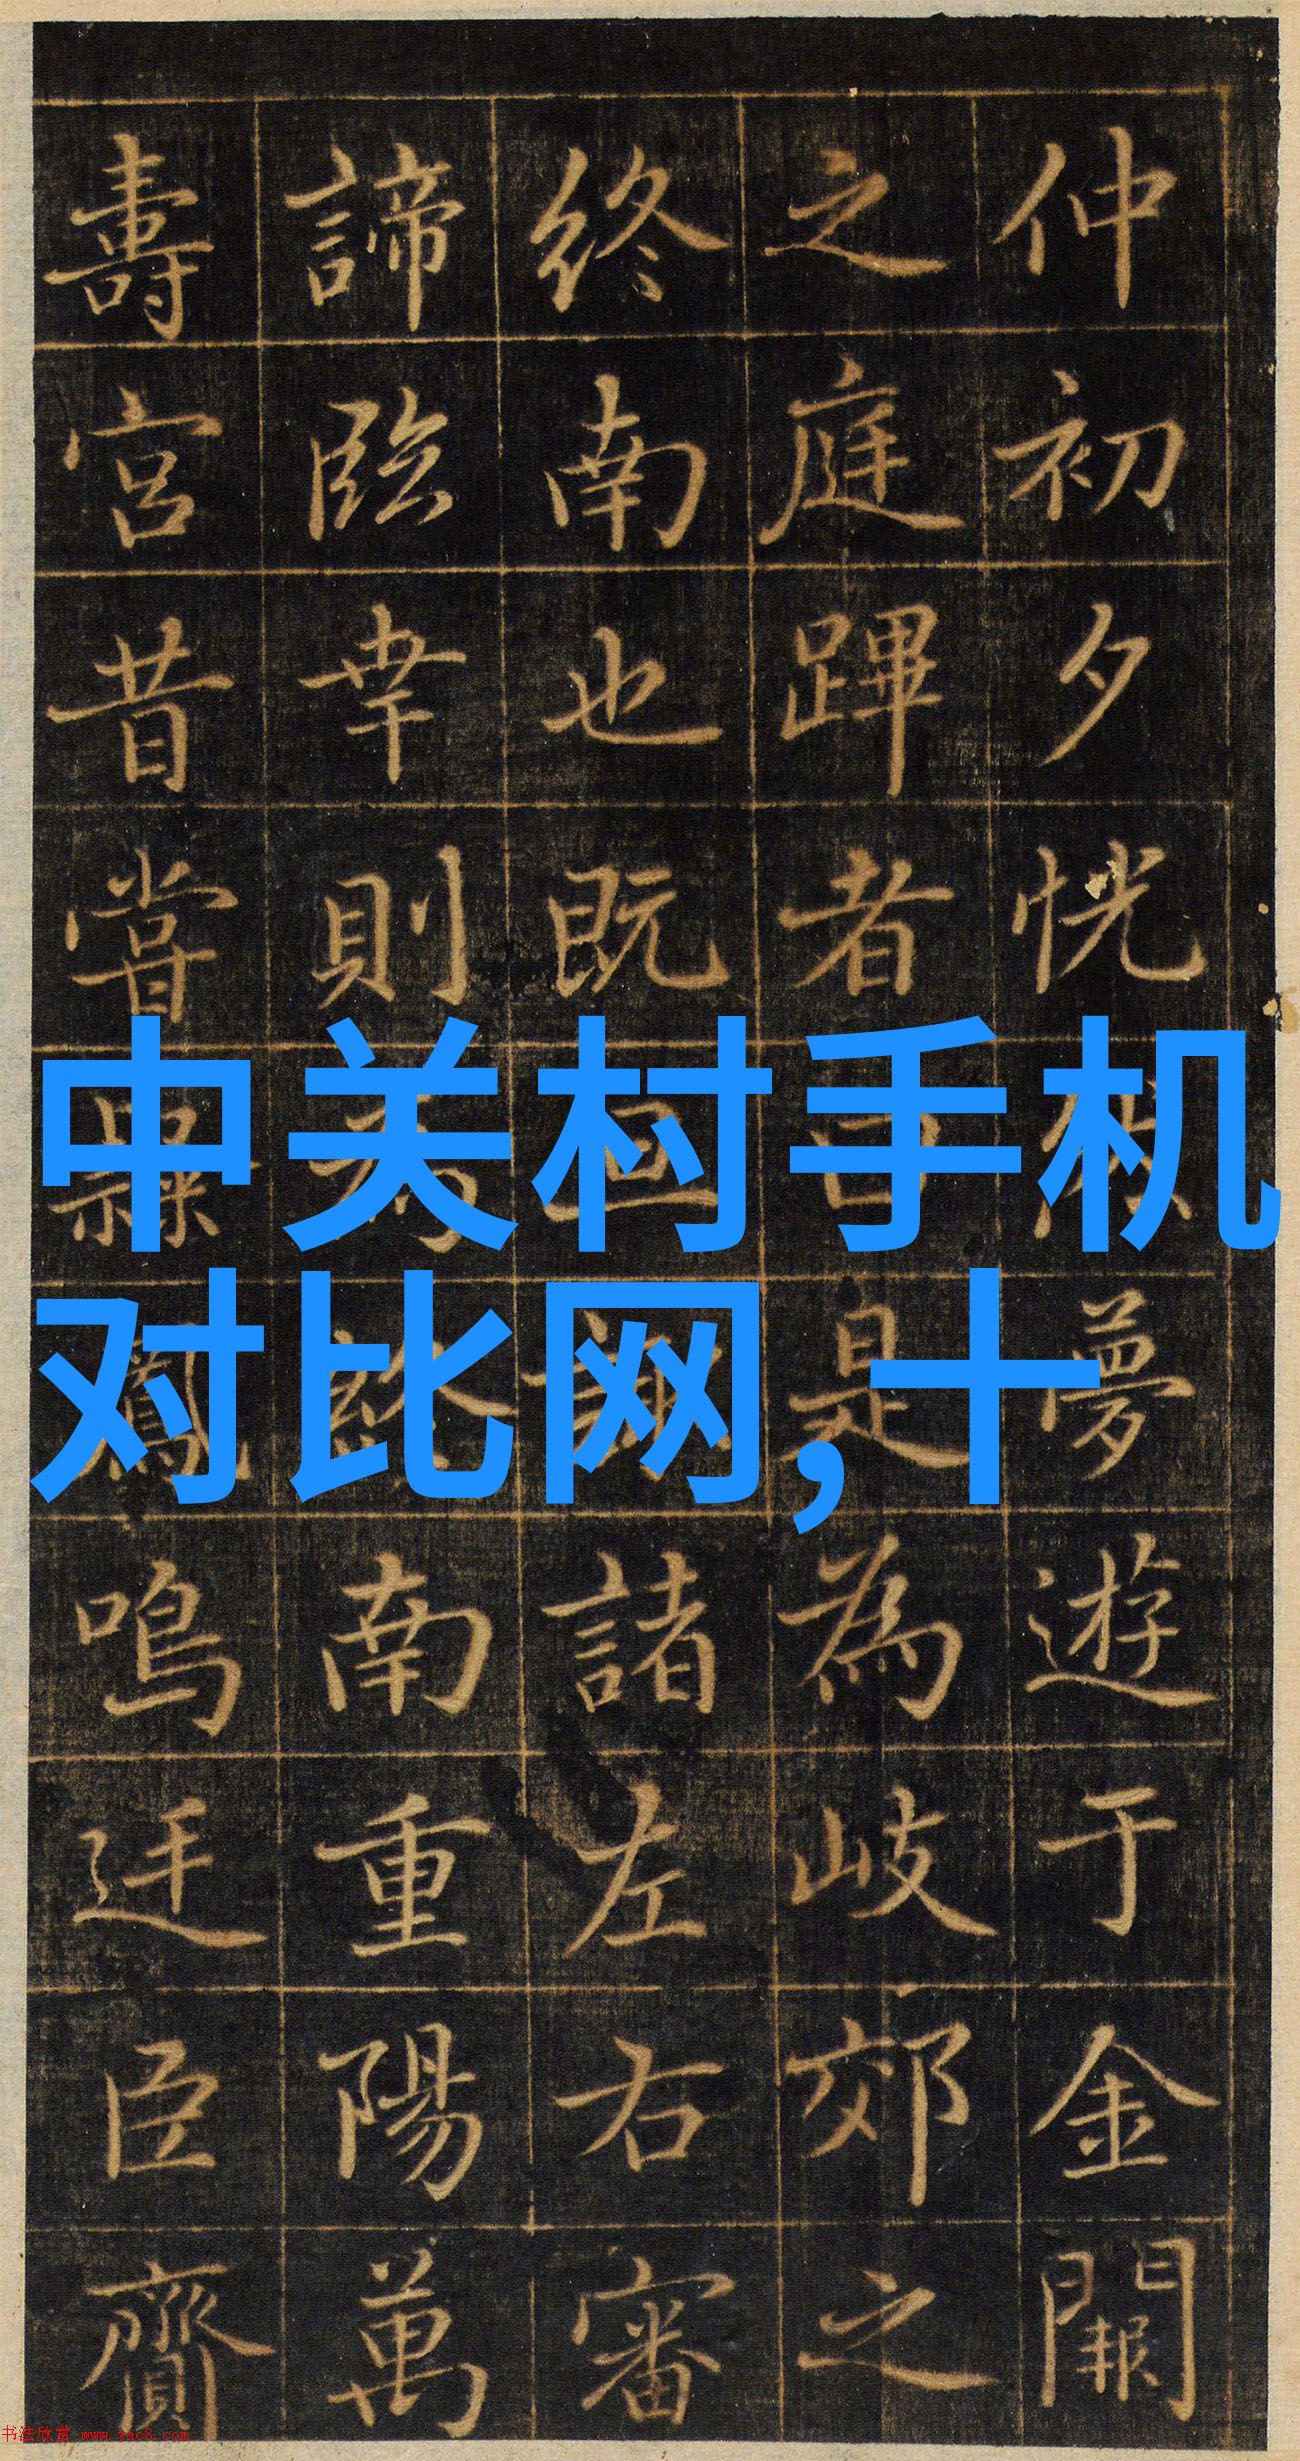 仲初夕恍夢遊于金闕
之庭蹕者曰是為岐郊之
終南也既諸左右審
諦臨幸則南重陽萬
壽宮昔嘗隸鳳鳴迓臣齎
中关村手机
对比网,十
书法欣赏 www.yac8.com